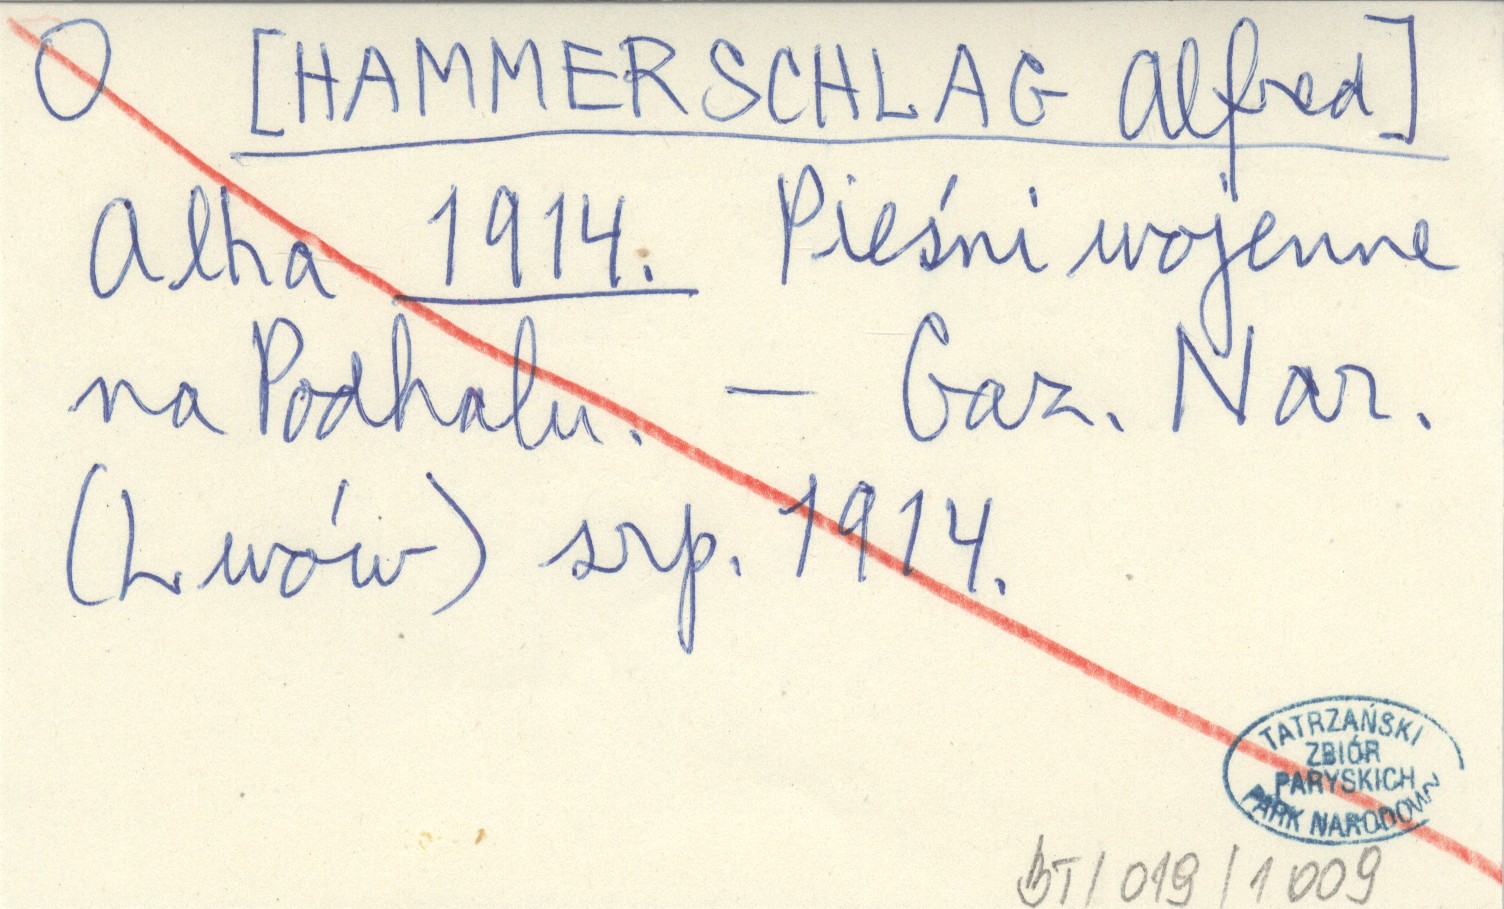 O [HAMMERSCHLAG Alfred]
Alha 1914. Pieśni wojenne
na Podhalu. — Gaz. Nar.
(Lwów) srp. 1914.
TATRZAŃSKI
ZBIÓR
PARYSKICH
PARK NARODOWY
BT/019/1009